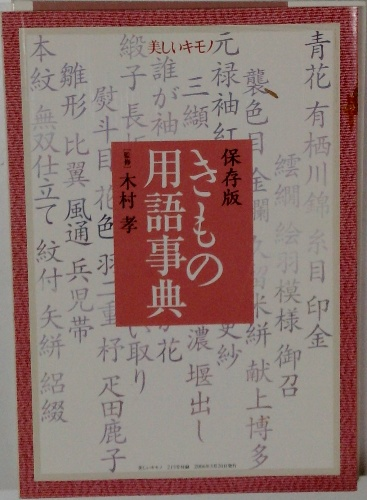 美しいキモノ
保存版
きもの
用語事典
[監修] 木村 孝
青花 有栖川錦 糸目 印金
繧繝 絵羽模様 御召
襲色目 金襴 久留米絣 献上博多
元禄袖 紅 更紗
三纈 濃 堰出し
誰が袖 花
緞子 長 い取り
熨斗目 花色 羽二重 杼 疋田鹿子
雛形 比翼 風通 兵児帯
本紋 無双仕立て 紋付 矢絣 絽綴